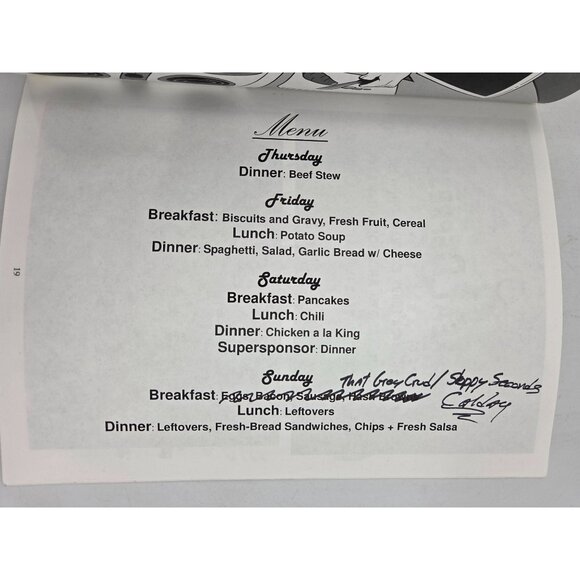 Menu
Thursday
Dinner: Beef Stew
Friday
Breakfast: Biscuits and Gravy, Fresh Fruit, Cereal
Lunch: Potato Soup
Dinner: Spaghetti, Salad, Garlic Bread w/ Cheese
Saturday
Breakfast: Pancakes
Lunch: Chili
Dinner: Chicken a la King
Supersponsor: Dinner
Sunday
That Grey Crud / Sloppy Seconds
Breakfast: Eggs, Bacon, Sausage, Hash
Lunch: Leftovers
Dinner: Leftovers, Fresh-Bread Sandwiches, Chips + Fresh Salsa
19